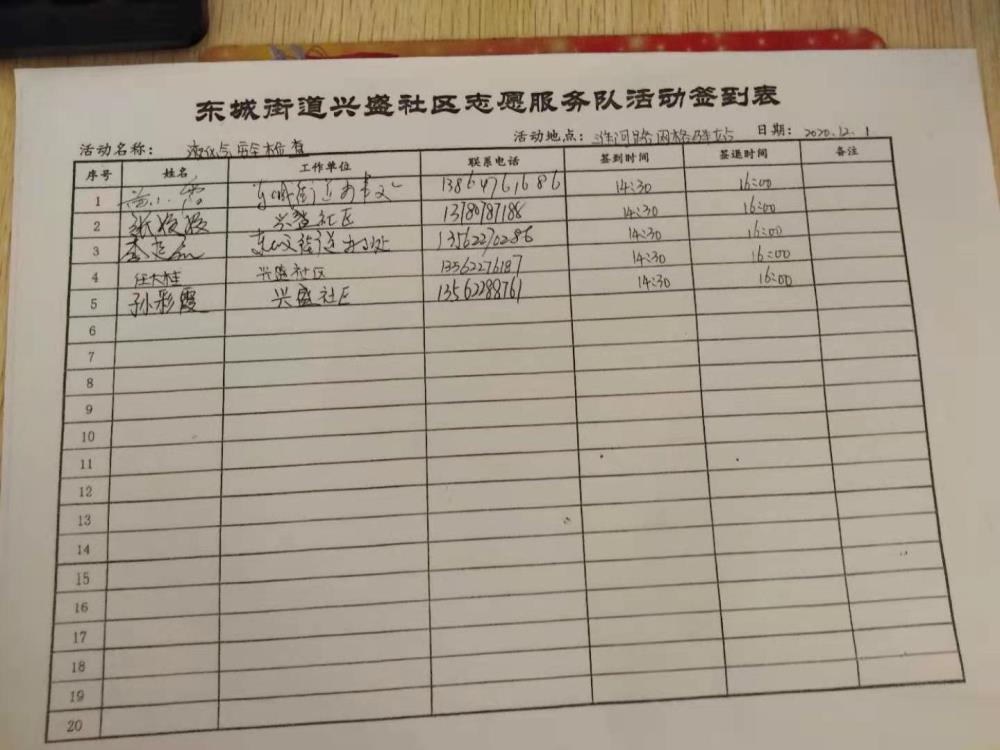 东城街道兴盛社区志愿服务队活动签到表
活动名称： 液化气安全检查 活动地点： 淮河路网格驿站 日期： 2020.12.1
序号 姓名 工作单位 联系电话 签到时间 签退时间 备注
1 东城街道办事处 13864761686 14:30 16:00
2 张姣姣 兴盛社区 13780787188 14:30 16:00
3 东城街道办事处 13562270286 14:30 16:00
4 任大桂 兴盛社区 13562276187 14:30 16:00
5 孙彩霞 兴盛社区 13562288761 14:30 16:00
6
7
8
9
10
11
12
13
14
15
16
17
18
19
20